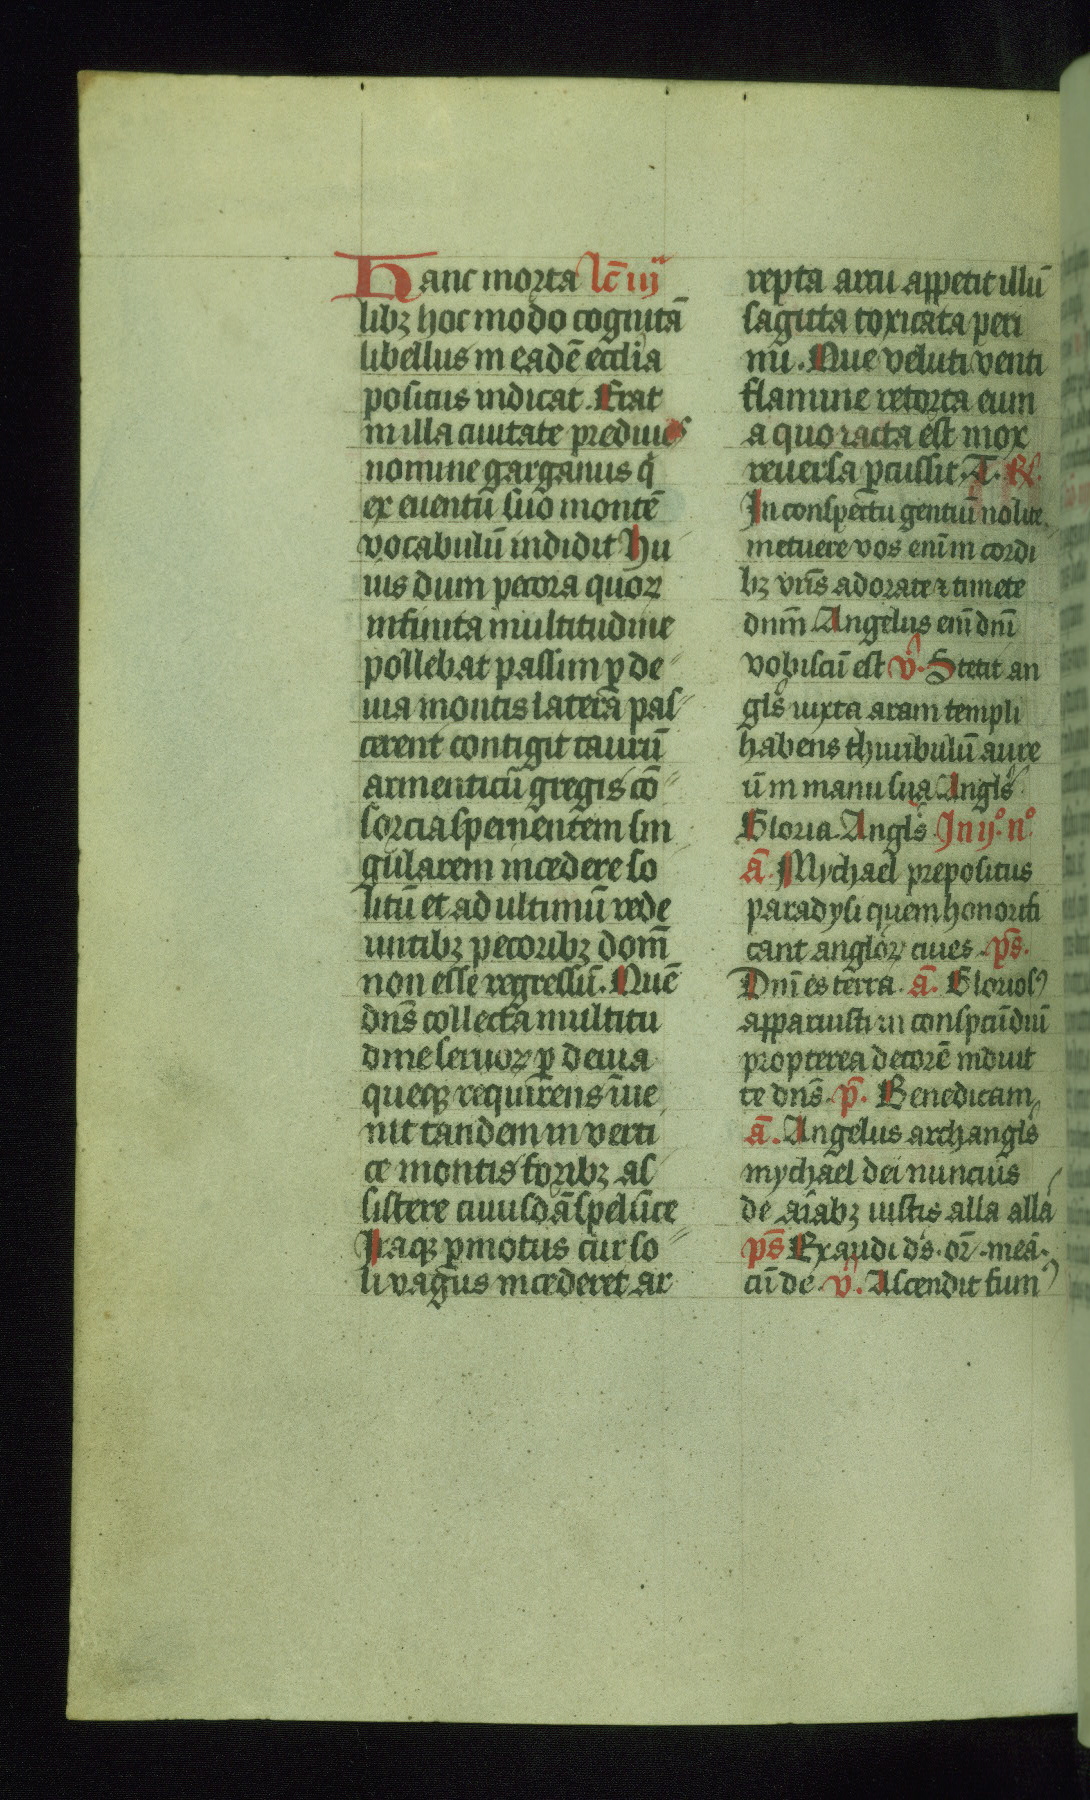 Hanc morta lc̄ iij
libꝫ hoc modo cognitā
libellus in eadē ecclīa
positus indicat. Erat
in illa ciuitate prediues
nomine garganus q̇
ex euentū suo montē
vocabulū indidit Hu
ius dum pecora quoꝝ
infinita multitudine
pollebat passim ꝑ de
uia montis latera pas
cerent contigit taurū
armenti cū gregis cō
sorcia spernentem sin
gularem incedere so
litū et ad ultimū rede
untibꝫ pecoribꝫ domū
non esse regressū. Quē
dn̄s collecta multitu
dine seruoꝝ ꝑ deuia
queqꝫ requirens īue
nit tandem in verti
ce montis foribꝫ as
sistere cuiusdā spelūce
Itaqꝫ ꝑmotus cur so
li vagus incederet ar
repta arcu appetit illū
sagitta toxicata peri
mi. Que veluti venti
flamine retorta eum
a quo iacta est mox
reuersa ꝑcussit. T. R̸.
In conspectu gentiū nolite
metuere vos enī in cordi
bꝫ vr̄is adorate ⁊ timete
dnm̄ Angelus enī dnī
vobiscū est v̄. Stetit an
gl̄s iuxta aram templi
habens thuribulū aure
ū in manu sua Angl̄s
Gloria. Angl̄s In ij° n°
ā Mychael prepositus
paradysi quem honorifi
cant angloꝝ ciues. ps̄.
Dnī es terra. ā. Gloriosꝰ
apparuisti in conspcū dnī
propterea decorē induit
te dn̄s. p̄. Benedicam
ā. Angelus archangl̄s
mychael dei nuncius
de aīabꝫ iustis alla alla
ps̄ Exaudi d̄s. or̄. meā.
cū de. v̄. Ascendit fumꝰ